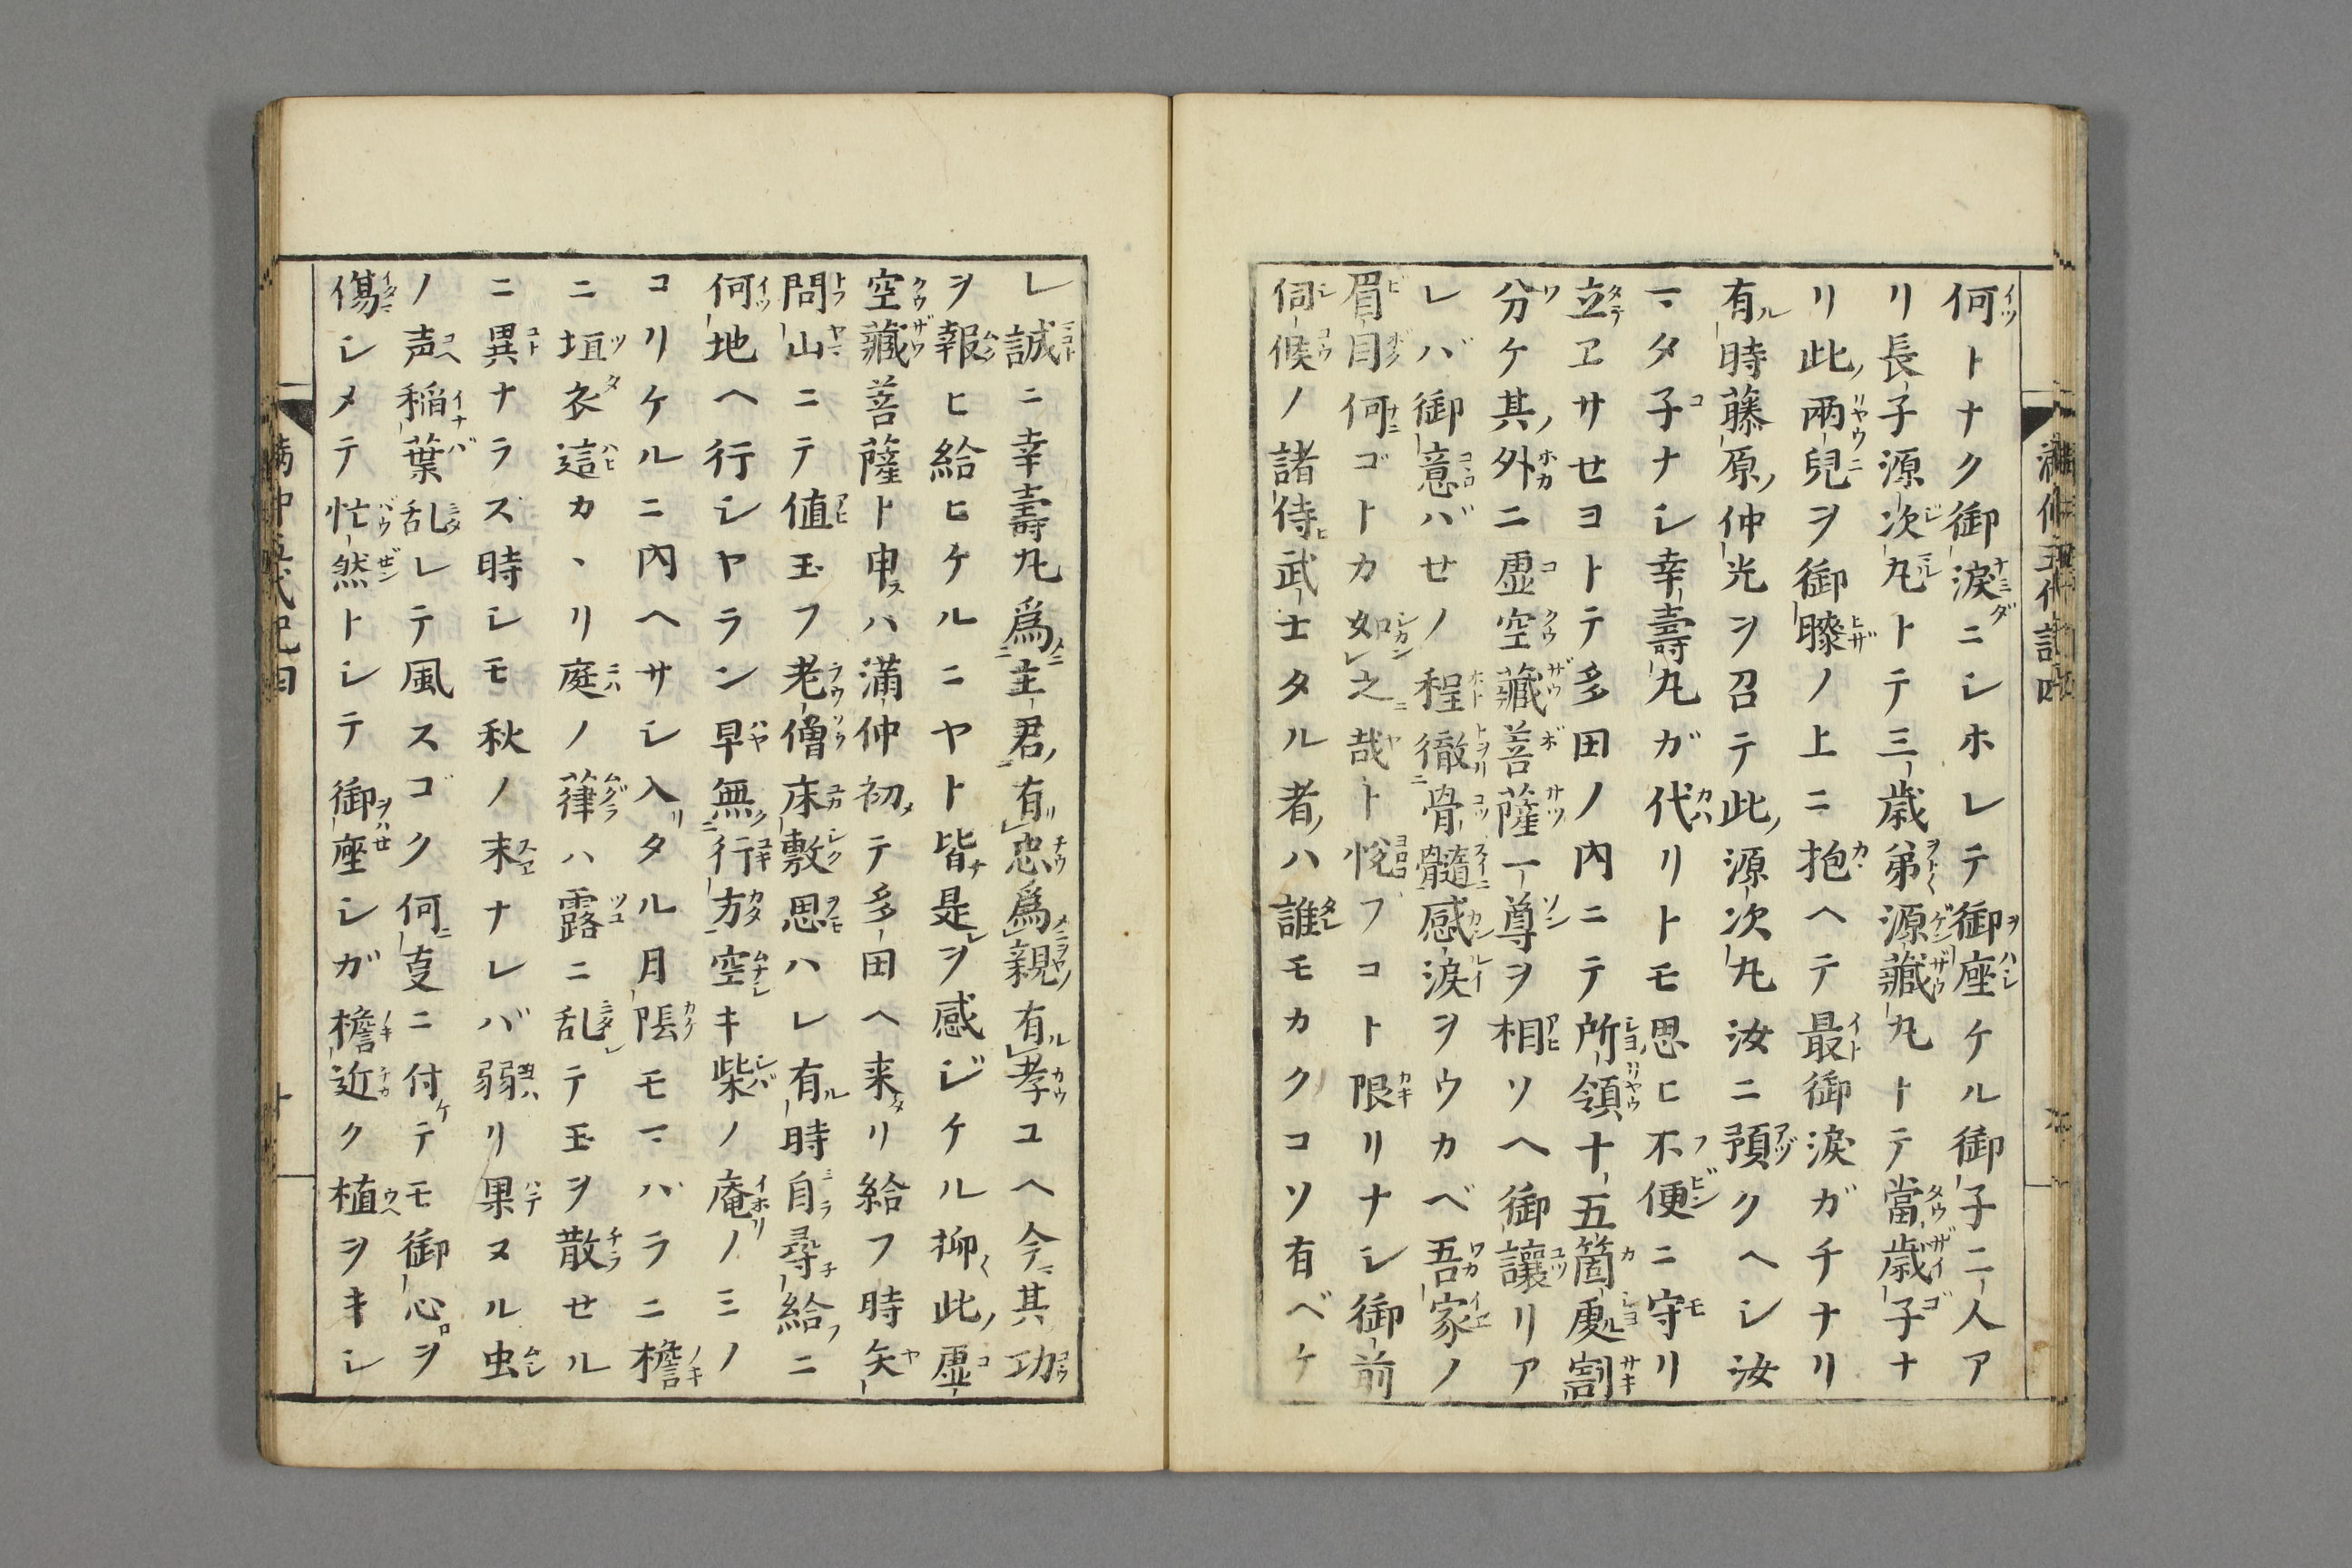 何トナク御涙ニシホレテ御座ケル御子二人ア
リ長子源次丸トテ三歳弟源藏丸トテ當歳子ナ
リ此兩兒ヲ御膝ノ上ニ抱ヘテ最御涙ガチナリ
有時藤原仲光ヲ召テ此源次丸汝ニ預クヘシ汝
マタ子ナシ幸壽丸ガ代リトモ思ヒ不便ニ守リ
立ヱサセヨトテ多田ノ内ニテ所領十五箇處割
分ケ其外ニ虚空藏菩薩一尊ヲ相ソヘ御讓リア
レバ御意バセノ程徹骨髓感涙ヲウカベ吾家ノ
眉目何ゴトカ如之哉ト悅フコト限リナシ御前
伺候ノ諸侍武士タル者ハ誰モカクコソ有ベケ
レ誠ニ幸壽丸爲主君有忠爲親有孝ユヘ今其功
ヲ報ヒ給ヒケルニヤト皆是ヲ感ジケル抑此虚
空藏菩薩ト申ハ滿仲初テ多田ヘ来リ給フ時矢
問山ニテ値玉フ老僧床敷思ハレ有時自尋給ニ
何地ヘ行シヤラン早無行方空キ柴ノ庵ノミノ
コリケルニ内ヘサシ入タル月隂モマバラニ檐
ニ垣衣這カヽリ庭ノ葎ハ露ニ乱テ玉ヲ散せル
ニ異ナラズ時シモ秋ノ末ナレバ弱リ果ヌル虫
ノ声稲葉乱レテ風スゴク何㕝ニ付テモ御心ヲ
傷シメテ忙然トシテ御座シガ檐近ク植ヲキシ